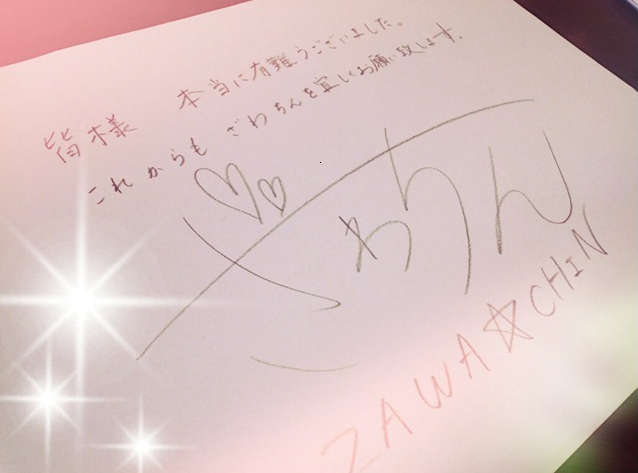 皆様 本当に有難うございました。
これからも ざわちんを宜しくお願い致します。
ざわちん
ZAWA☆CHIN